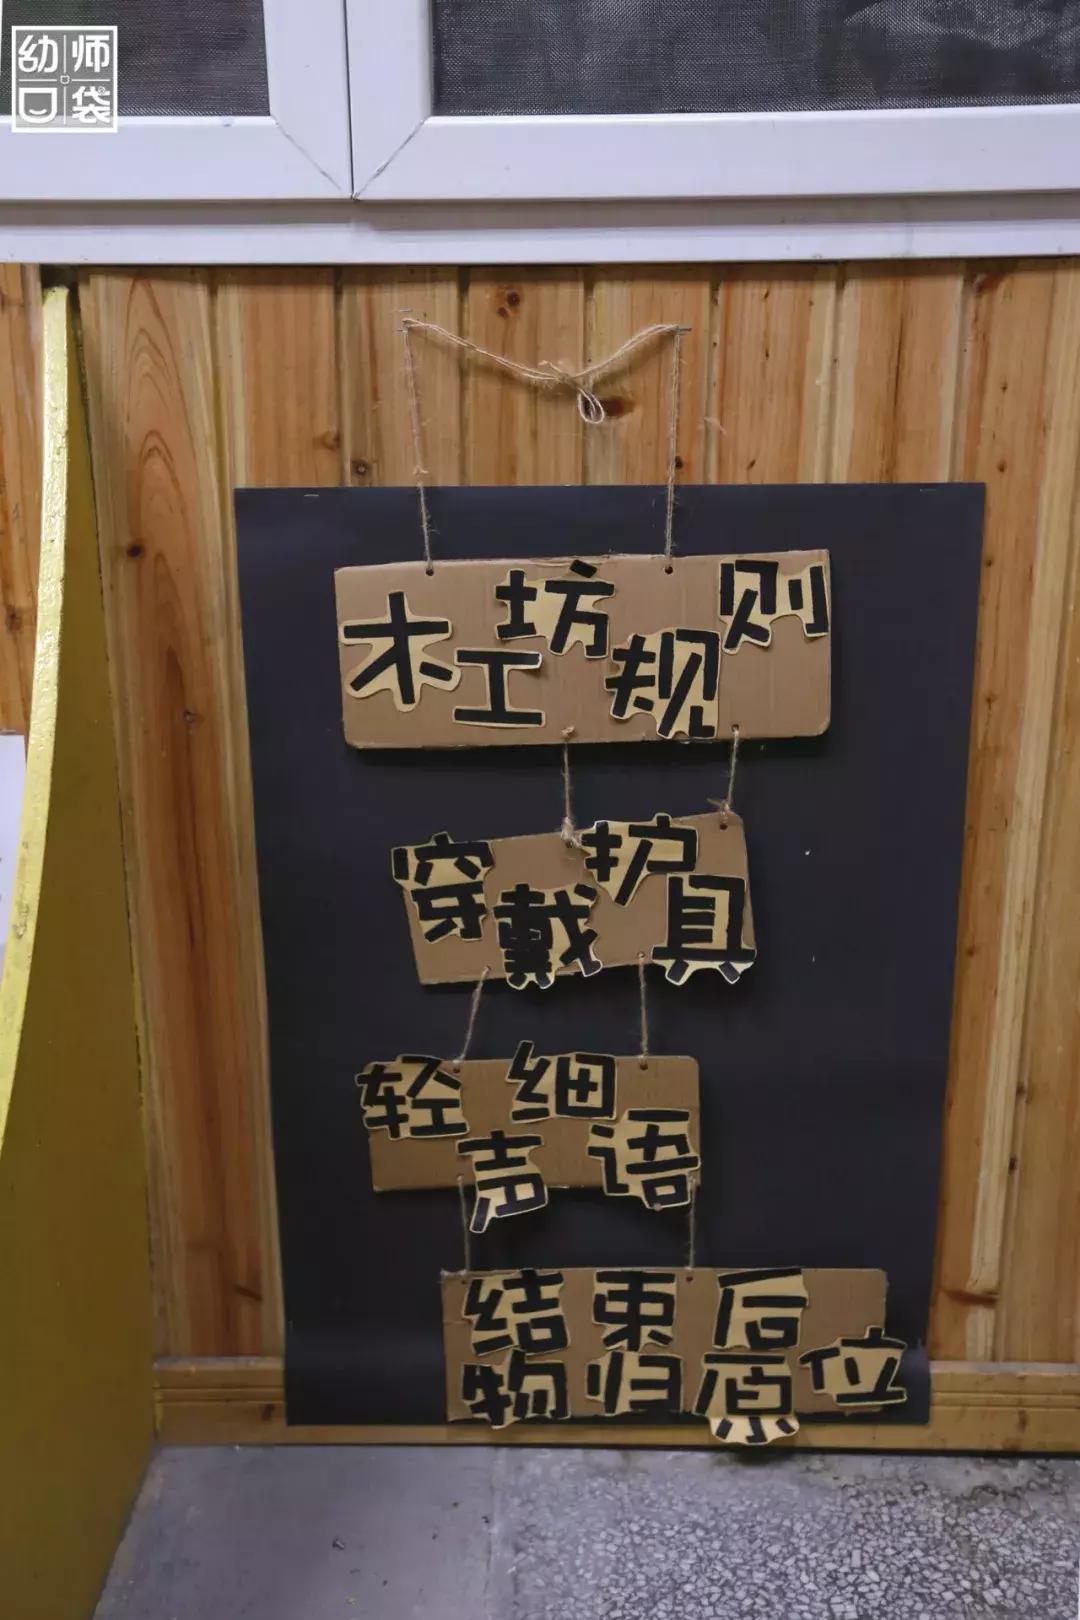 幼师口袋
木工坊规则
穿戴护具
轻声细语
结束后
物归原位